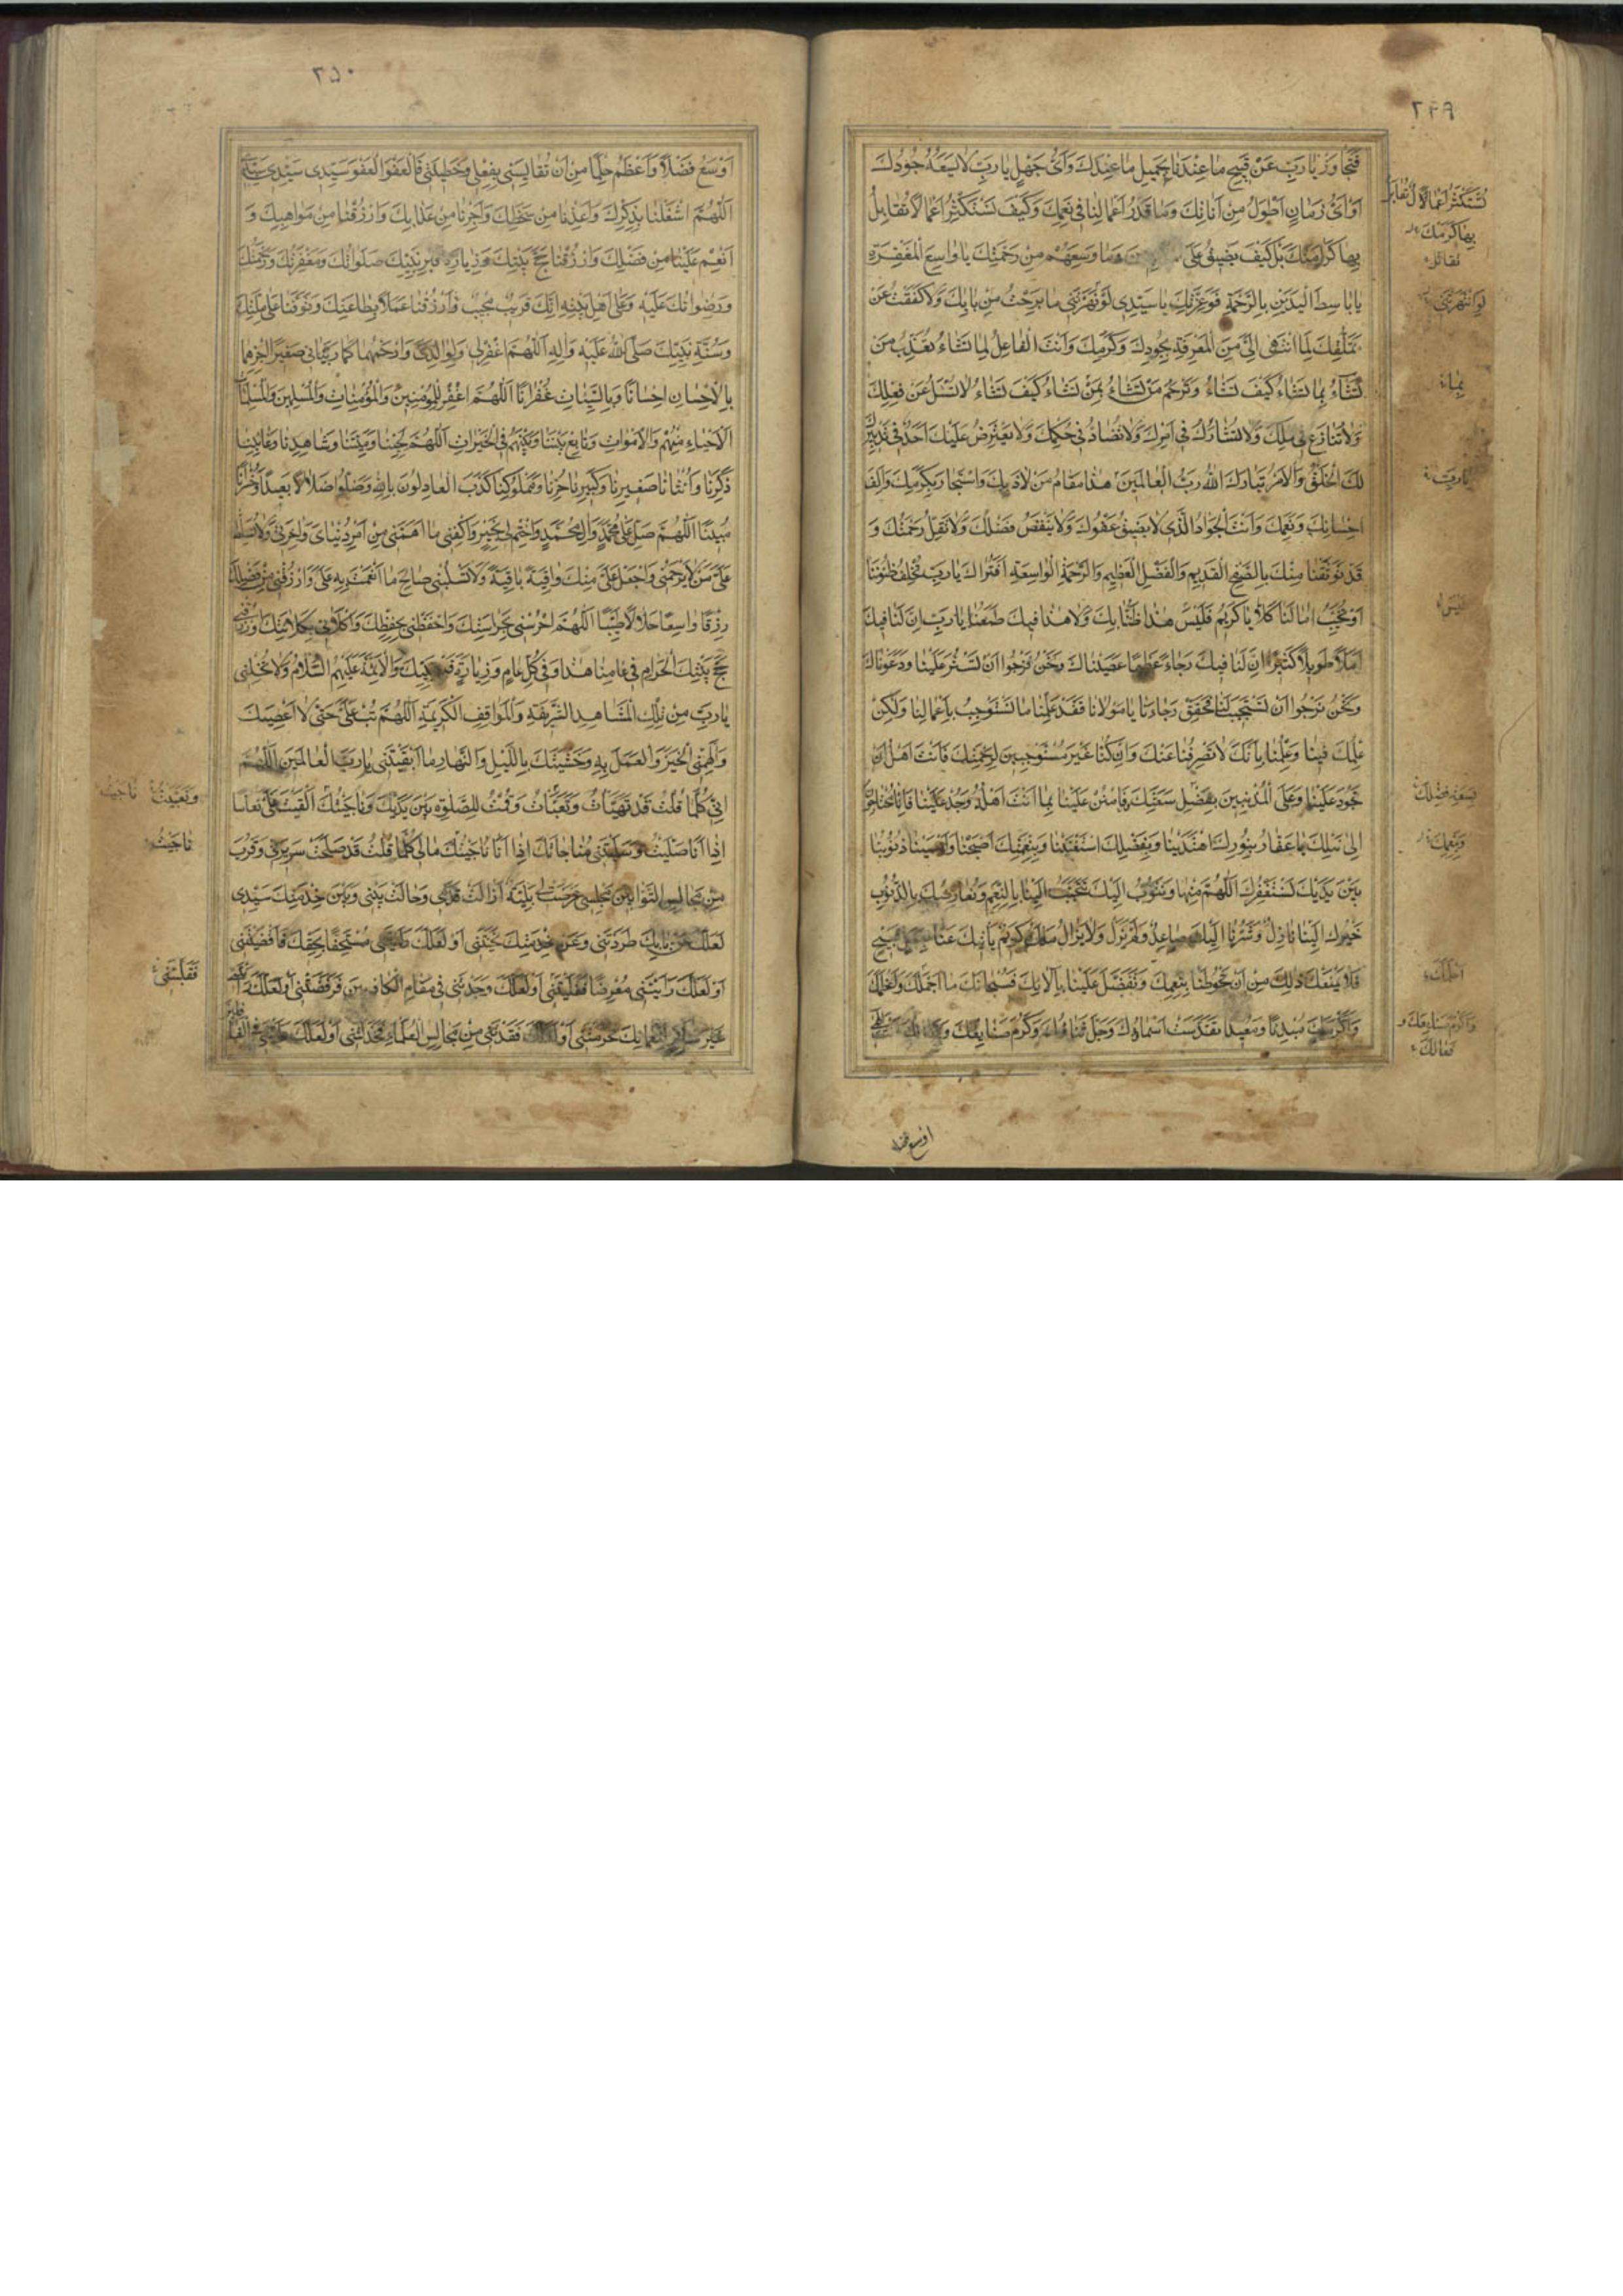 ٢٤٩
فَتَجاوَزْ يا رَبِّ عَنْ قَبيحِ ما عِنْدَنا بِجَميلِ ما عِنْدَكَ وَاَىُّ جَهْلٍ يا رَبِّ لا يَسَعُهُ جُودُكَ
اَوْ اَىُّ زَمانٍ اَطْوَلُ مِنْ اَناتِكَ وَما قَدْرُ اَعْمالِنا فى نِعَمِكَ وَكَيْفَ نَسْتَكْثِرُ اَعْمالاً نُقابِلُ
بِها كَرامَتَكَ بَلْ كَيْفَ يَضيقُ عَلَى وَما وَسِعَهُمْ مِنْ رَحْمَتِكَ يا واسِعَ الْمَغْفِرَةِ
يا باسِطَ الْيَدَيْنِ بِالرَّحْمَةِ فَوَعِزَّتِكَ يا سَيِّدى لَوْ نَهَرْتَنى ما بَرِحْتُ مِنْ بابِكَ وَلا كَفَفْتُ عَنْ
تَمَلُّقِكَ لِمَا انْتَهى اِلَىَّ مِنَ الْمَعْرِفَةِ بِجُودِكَ وَكَرَمِكَ وَاَنْتَ الْفاعِلُ لِما تَشاءُ تُعَذِّبُ مَنْ
تَشاءُ بِما تَشاءُ كَيْفَ تَشاءُ وَتَرْحَمُ مَنْ تَشاءُ بِمَنْ تَشاءُ كَيْفَ تَشاءُ لا تُسْئَلُ عَنْ فِعْلِكَ
وَلا تُنازَعُ فى مُلْكِكَ وَلا تُشارَكُ فى اَمْرِكَ وَلا تُضادُّ فى حُكْمِكَ وَلا يَعْتَرِضُ عَلَيْكَ اَحَدٌ فى تَدْبيرِكَ
لَكَ الْخَلْقُ وَالْاَمْرُ تَبارَكَ اللّٰهُ رَبُّ الْعالَمينَ هٰذا مَقامُ مَنْ لاذَ بِكَ وَاسْتَجارَ بِكَرَمِكَ وَاَلِفَ
اِحْسانَكَ وَنِعَمَكَ وَاَنْتَ الْجَوادُ الَّذى لا يَضيقُ عَفْوُكَ وَلا يَنْقُصُ فَضْلُكَ وَلا تَقِلُّ رَحْمَتُكَ وَ
قَدْ تَوَثَّقْنا مِنْكَ بِالصَّفْحِ الْقَديمِ وَالْفَضْلِ الْعَظيمِ وَالرَّحْمَةِ الْواسِعَةِ اَفَتُراكَ يا رَبِّ تُخْلِفُ ظُنُونَنا
اَوْ تُخَيِّبُ امالَنا كَلاّ يا كَريمُ فَلَيْسَ هٰذا ظَنُّنا بِكَ وَلا هٰذا فيكَ طَمَعُنا يا رَبِّ اِنَّ لَنا فيكَ
اَمَلاً طَويلاً كَثيراً اِنَّ لَنا فيكَ رَجاءً عَظيماً عَصَيْناكَ وَنَحْنُ نَرْجُوا اَنْ تَسْتُرَ عَلَيْنا وَدَعَوْناكَ
وَنَحْنُ نَرْجُوا اَنْ تَسْتَجيبَ لَنا فَحَقِّقْ رَجاءَنا يا مَوْلانا فَقَدْ عَلِمْنا ما نَسْتَوْجِبُ بِاَعْمالِنا وَلكِنْ
عِلْمُكَ فينا وَعِلْمُنا بِاَنَّكَ لا تَصْرِفُنا عَنْكَ وَاِنْ كُنّا غَيْرَ مُسْتَوْجِبينَ لِرَحْمَتِكَ فَاَنْتَ اَهْلُ اَنْ
تَجُودَ عَلَيْنا وَعَلَى الْمُذْنِبينَ بِفَضْلِ سَعَتِكَ فَامْنُنْ عَلَيْنا بِما اَنْتَ اَهْلُهُ وَجُدْ عَلَيْنا فَاِنّا مُحْتاجُونَ
اِلى نَيْلِكَ يا غَفّارُ بِنُورِكَ اهْتَدَيْنا وَبِفَضْلِكَ اسْتَغْنَيْنا وَبِنِعْمَتِكَ اَصْبَحْنا وَاَمْسَيْنا ذُنُوبُنا
بَيْنَ يَدَيْكَ نَسْتَغْفِرُكَ اَللّٰهُمَّ مِنْها وَنَتُوبُ اِلَيْكَ تَتَحَبَّبُ اِلَيْنا بِالنِّعَمِ وَنُعارِضُكَ بِالذُّنُوبِ
خَيْرُكَ اِلَيْنا نازِلٌ وَشَرُّنا اِلَيْكَ صاعِدٌ وَلَمْ يَزَلْ وَلا يَزالُ مَلَكٌ كَريمٌ يَأْتيكَ عَنّا قَبيحٍ
فَلا يَمْنَعُكَ ذلِكَ مِنْ اَنْ تَحُوطَنا بِنِعَمِكَ وَتَتَفَضَّلَ عَلَيْنا بِالائِكَ فَسُبْحانَكَ ما اَحْلَمَكَ وَاَعْظَمَكَ
وَاَكْرَمَكَ مُبْدِئاً وَمُعيداً تَقَدَّسَتْ اَسْماؤُكَ وَجَلَّ ثَناؤُكَ وَكَرُمَ صَنائِعُكَ
نَسْتَكْثِرُ اَعْمالاً نُقابِلُ
بِها كَرَمَكَ
لَوِ انْتَهَرْتَنى
بِما
يا رَبِّ
فَلَيْسَ
وَبِنِعَمِكَ
فَعالُكَ
اوسع فضلا
٢٥٠
اَوْسَعُ فَضْلاً وَاَعْظَمُ حِلْماً مِنْ اَنْ تُقايِسَنى بِفِعْلى وَخَطيئَتى فَالْعَفْوَ الْعَفْوَ سَيِّدى سَيِّدى سَيِّدى
اَللّٰهُمَّ اشْغَلْنا بِذِكْرِكَ وَاَعِذْنا مِنْ سَخَطِكَ وَاَجِرْنا مِنْ عَذابِكَ وَارْزُقْنا مِنْ مَواهِبِكَ وَ
اَنْعِمْ عَلَيْنا مِنْ فَضْلِكَ وَارْزُقْنا حَجَّ بَيْتِكَ وَزِيارَةَ قَبْرِ نَبِيِّكَ صَلَواتُكَ وَمَغْفِرَتُكَ وَرَحْمَتُكَ
وَرِضْوانُكَ عَلَيْهِ وَعَلى اَهْلِ بَيْتِهِ اِنَّكَ قَريبٌ مُجيبٌ وَارْزُقْنا عَمَلاً بِطاعَتِكَ وَتَوَفَّنا عَلى مِلَّتِكَ
وَسُنَّةِ نَبِيِّكَ صَلَّى اللّٰهُ عَلَيْهِ وَالِهِ اَللّٰهُمَّ اغْفِرْ لى وَلِوالِدَىَّ وَارْحَمْهُما كَما رَبَّيانى صَغيراً اِجْزِهِما
بِالْاِحْسانِ اِحْساناً وَبِالسَّيِّئاتِ غُفْراناً اَللّٰهُمَّ اغْفِرْ لِلْمُؤْمِنينَ وَالْمُؤْمِناتِ وَالْمُسْلِمينَ وَالْمُسْلِماتِ
اَلْاَحْياءِ مِنْهُمْ وَالْاَمْواتِ وَتابِعْ بَيْنَنا وَبَيْنَهُمْ فِى الْخَيْراتِ اَللّٰهُمَّ لِحَيِّنا وَمَيِّتِنا وَشاهِدِنا وَغائِبِنا
ذَكَرِنا وَاُنْثانا صَغيرِنا وَكَبيرِنا حُرِّنا وَمَمْلُوكِنا كَذَبَ الْعادِلُونَ بِاللّٰهِ وَضَلُّوا ضَلالاً بَعيداً وَخَسِرُوا خُسْراناً
مُبيناً اَللّٰهُمَّ صَلِّ عَلى مُحَمَّدٍ وَالِ مُحَمَّدٍ وَاخْتِمْ لى بِخَيْرٍ وَاكْفِنى ما اَهَمَّنى مِنْ اَمْرِ دُنْياىَ وَاخِرَتى وَلا تُسَلِّطْ
عَلَىَّ مَنْ لا يَرْحَمُنى وَاجْعَلْ عَلَىَّ مِنْكَ واقِيَةً باقِيَةً وَلا تَسْلُبْنى صالِحَ ما اَنْعَمْتَ بِهِ عَلَىَّ وَارْزُقْنى مِنْ فَضْلِكَ
رِزْقاً واسِعاً حَلالاً طَيِّباً اَللّٰهُمَّ احْرُسْنى بِحَراسَتِكَ وَاحْفَظْنى بِحِفْظِكَ وَاكْلَاْنى بِكَلاءَتِكَ وَارْزُقْنى
حَجَّ بَيْتِكَ الْحَرامِ فى عامِنا هٰذا وَفى كُلِّ عامٍ وَزِيارَةَ قَبْرِ نَبِيِّكَ وَالْاَئِمَّةِ عَلَيْهِمُ السَّلامُ وَلا تُخْلِنى
يا رَبِّ مِنْ تِلْكَ الْمَشاهِدِ الشَّريفَةِ وَالْمَواقِفِ الْكَريمَةِ اَللّٰهُمَّ تُبْ عَلَىَّ حَتّى لا اَعْصِيَكَ
وَاَلْهِمْنِى الْخَيْرَ وَالْعَمَلَ بِهِ وَخَشْيَتَكَ بِاللَّيْلِ وَالنَّهارِ ما اَبْقَيْتَنى يا رَبَّ الْعالَمينَ اَللّٰهُمَّ
اِنّى كُلَّما قُلْتُ قَدْ تَهَيَّأْتُ وَتَعَبَّأْتُ وَقُمْتُ لِلصَّلوةِ بَيْنَ يَدَيْكَ وَناجَيْتُكَ اَلْقَيْتَ عَلَىَّ نُعاساً
اِذا اَنَا صَلَّيْتُ وَسَلَبْتَنى مُناجاتَكَ اِذا اَنَا ناجَيْتُكَ مالى كُلَّما قُلْتُ قَدْ صَلُحَتْ سَريرَتى وَقَرُبَ
مِنْ مَجالِسِ التَّوّابينَ مَجْلِسى عَرَضَتْ لى بَلِيَّةٌ اَزالَتْ قَدَمى وَحالَتْ بَيْنى وَبَيْنَ خِدْمَتِكَ سَيِّدى
لَعَلَّكَ عَنْ بابِكَ طَرَدْتَنى وَعَنْ خِدْمَتِكَ نَحَّيْتَنى اَوْ لَعَلَّكَ رَاَيْتَنى مُسْتَخِفّاً بِحَقِّكَ فَاَقْصَيْتَنى
اَوْ لَعَلَّكَ رَاَيْتَنى مُعْرِضاً فَقَلَيْتَنى اَوْ لَعَلَّكَ وَجَدْتَنى فى مَقامِ الْكاذِبينَ فَرَفَضْتَنى اَوْ لَعَلَّكَ رَاَيْتَنى
غَيْرَ شاكِرٍ لِنَعْمائِكَ فَحَرَمْتَنى اَوْ لَعَلَّكَ فَقَدْتَنى مِنْ مَجالِسِ الْعُلَماءِ فَخَذَلْتَنى اَوْ لَعَلَّكَ رَاَيْتَنى فِى الْغافِلينَ
وَتَعَبَّيْتُ
ناجَيْتُ
فَقَلَبْتَنى